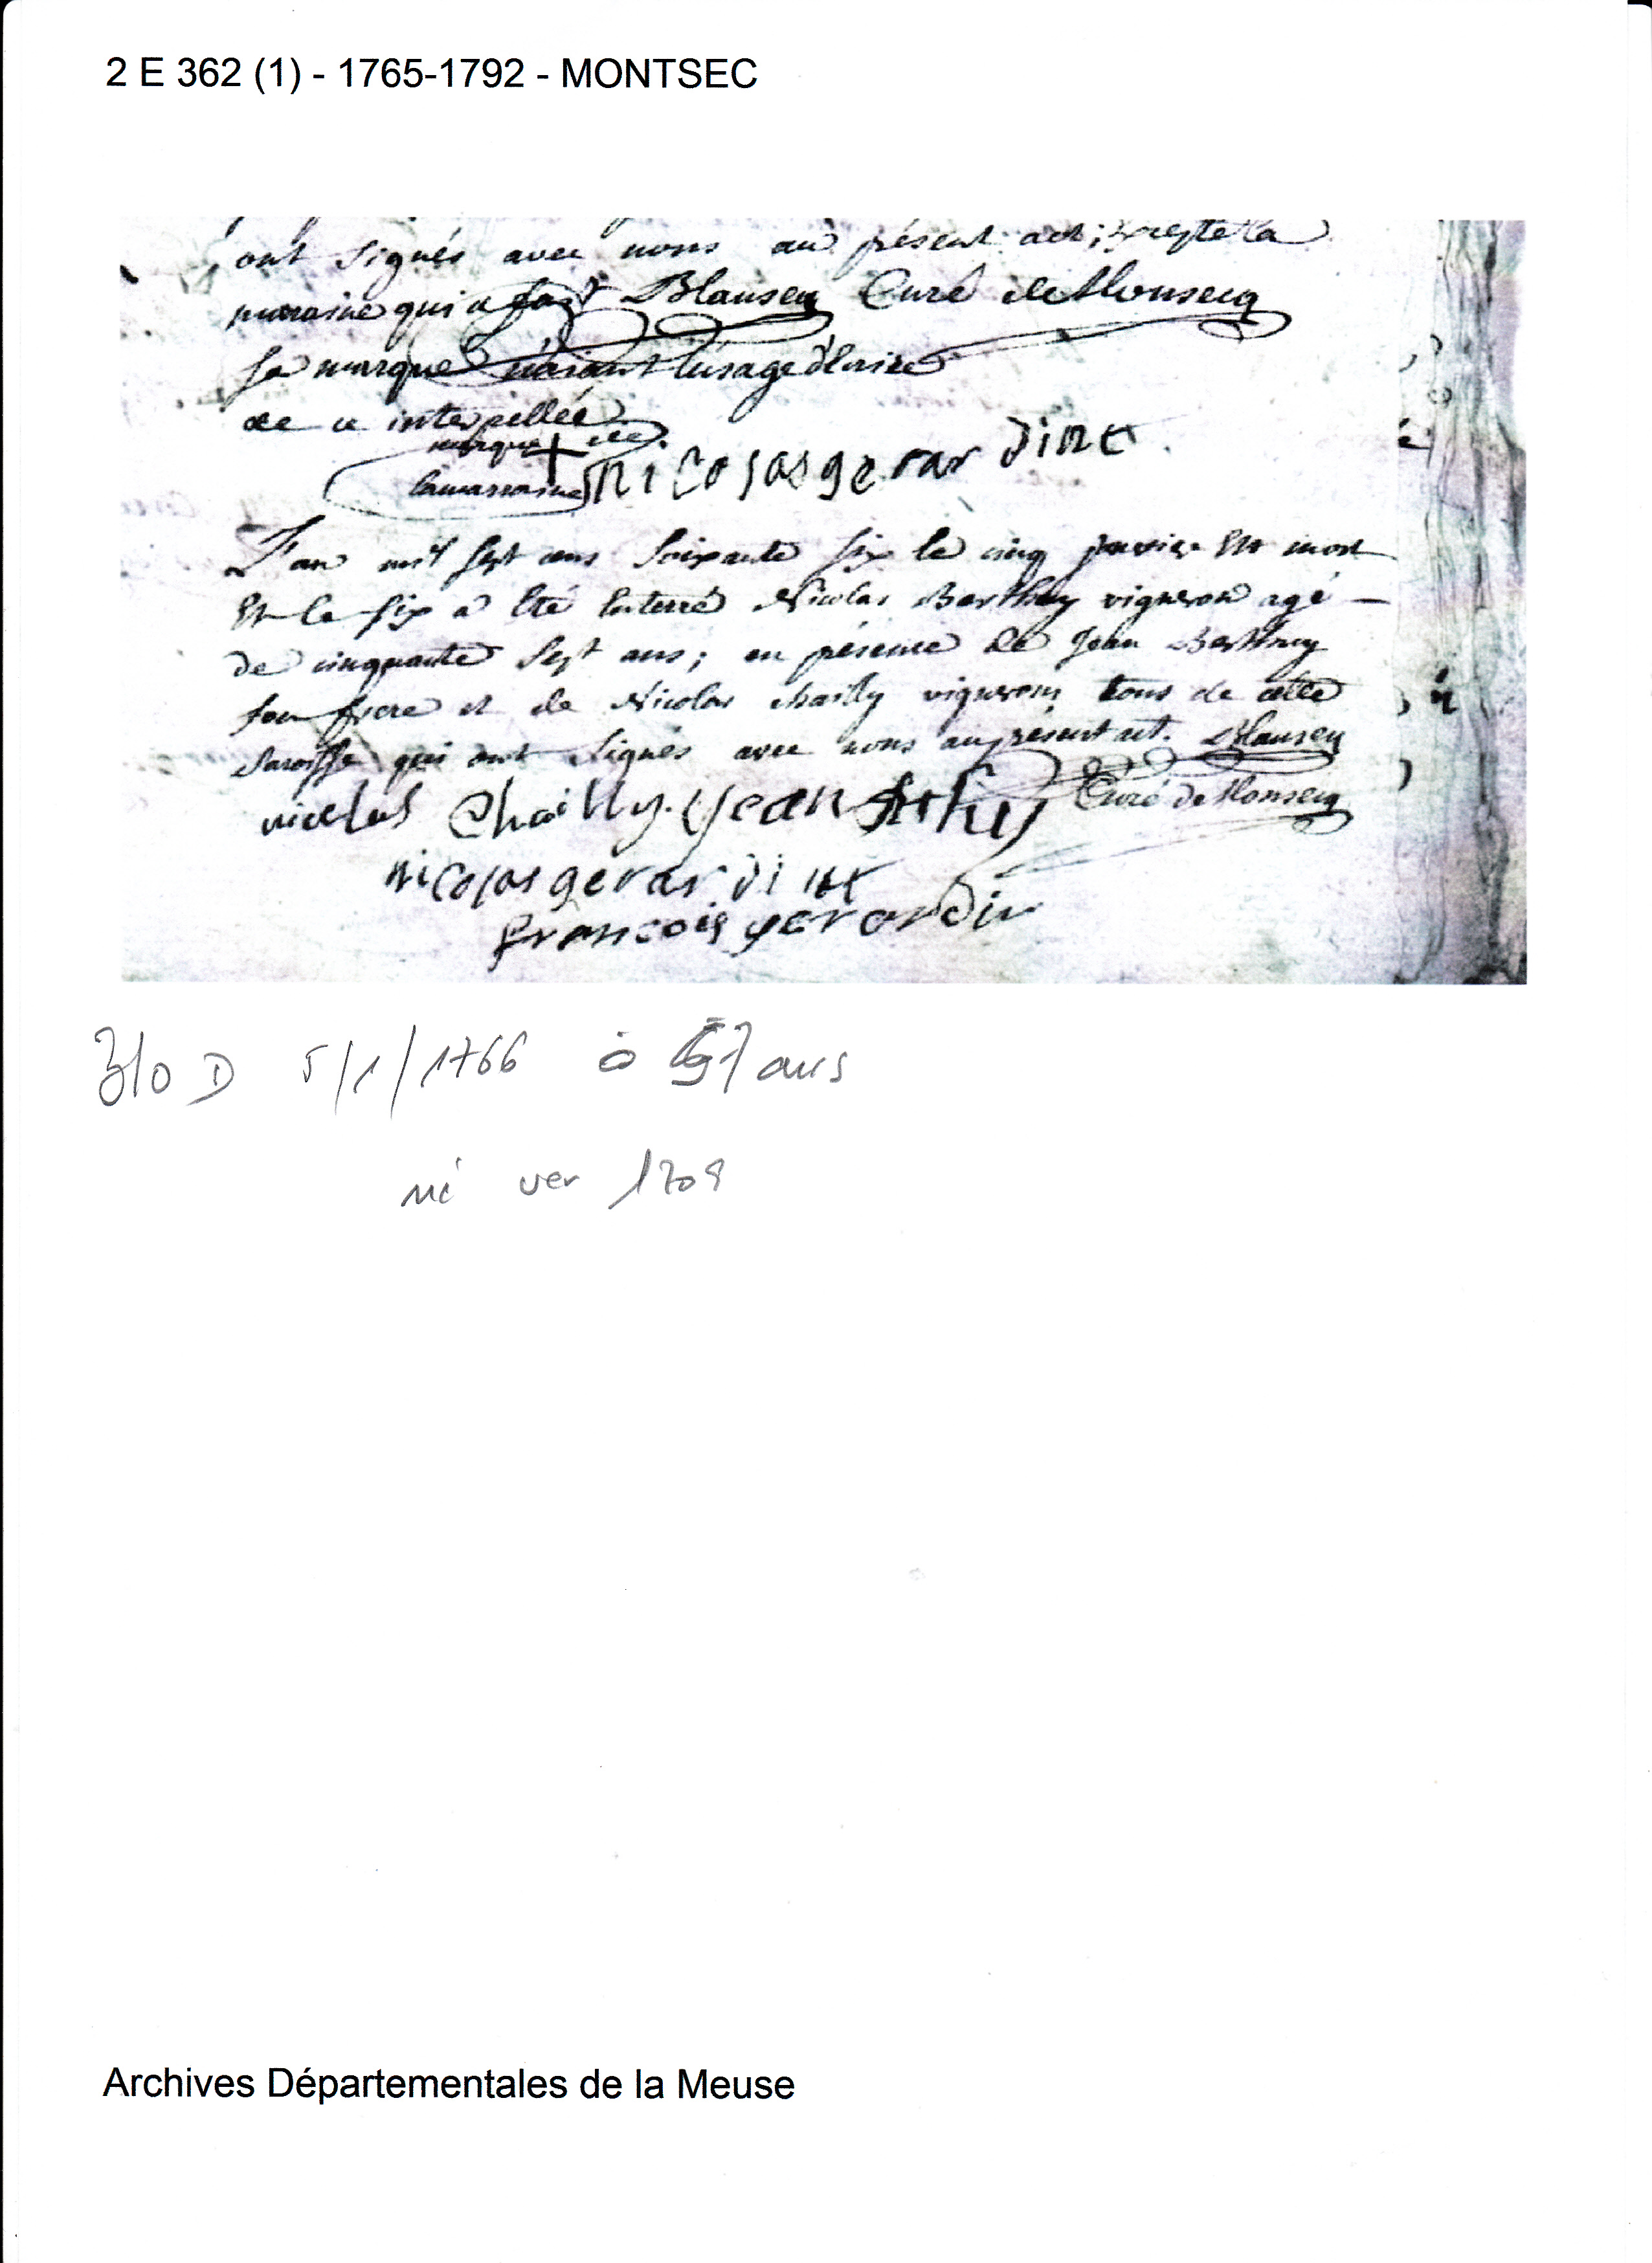 2 E 362 (1) - 1765-1792 - MONTSEC
ont signés avec nous au présent act; excepte la
maraine qui a fait Blausey Curé de Monsecq
sa marque n'aiant l'usage d'Ecrire
de ce interpellée
marque + de
la marraine Nicolas gerardint
L'an mil sept cens soixante six le cinq janvier Est mort
Et le six a Eté Enterré Nicolas Barthey vigneron agé
de cinquante sept ans; en présence de Jean Barthey
son frere et de Nicolas chailly vignerons tous de cette
Paroisse qui ont signés avec nous au présent act. Blausey
nicolas Chailly. jean Curé de Monsecq
nicolas gerardint
francois gerardin
310 D 5/1/1766 à 57 ans
né ver 1709
Archives Départementales de la Meuse